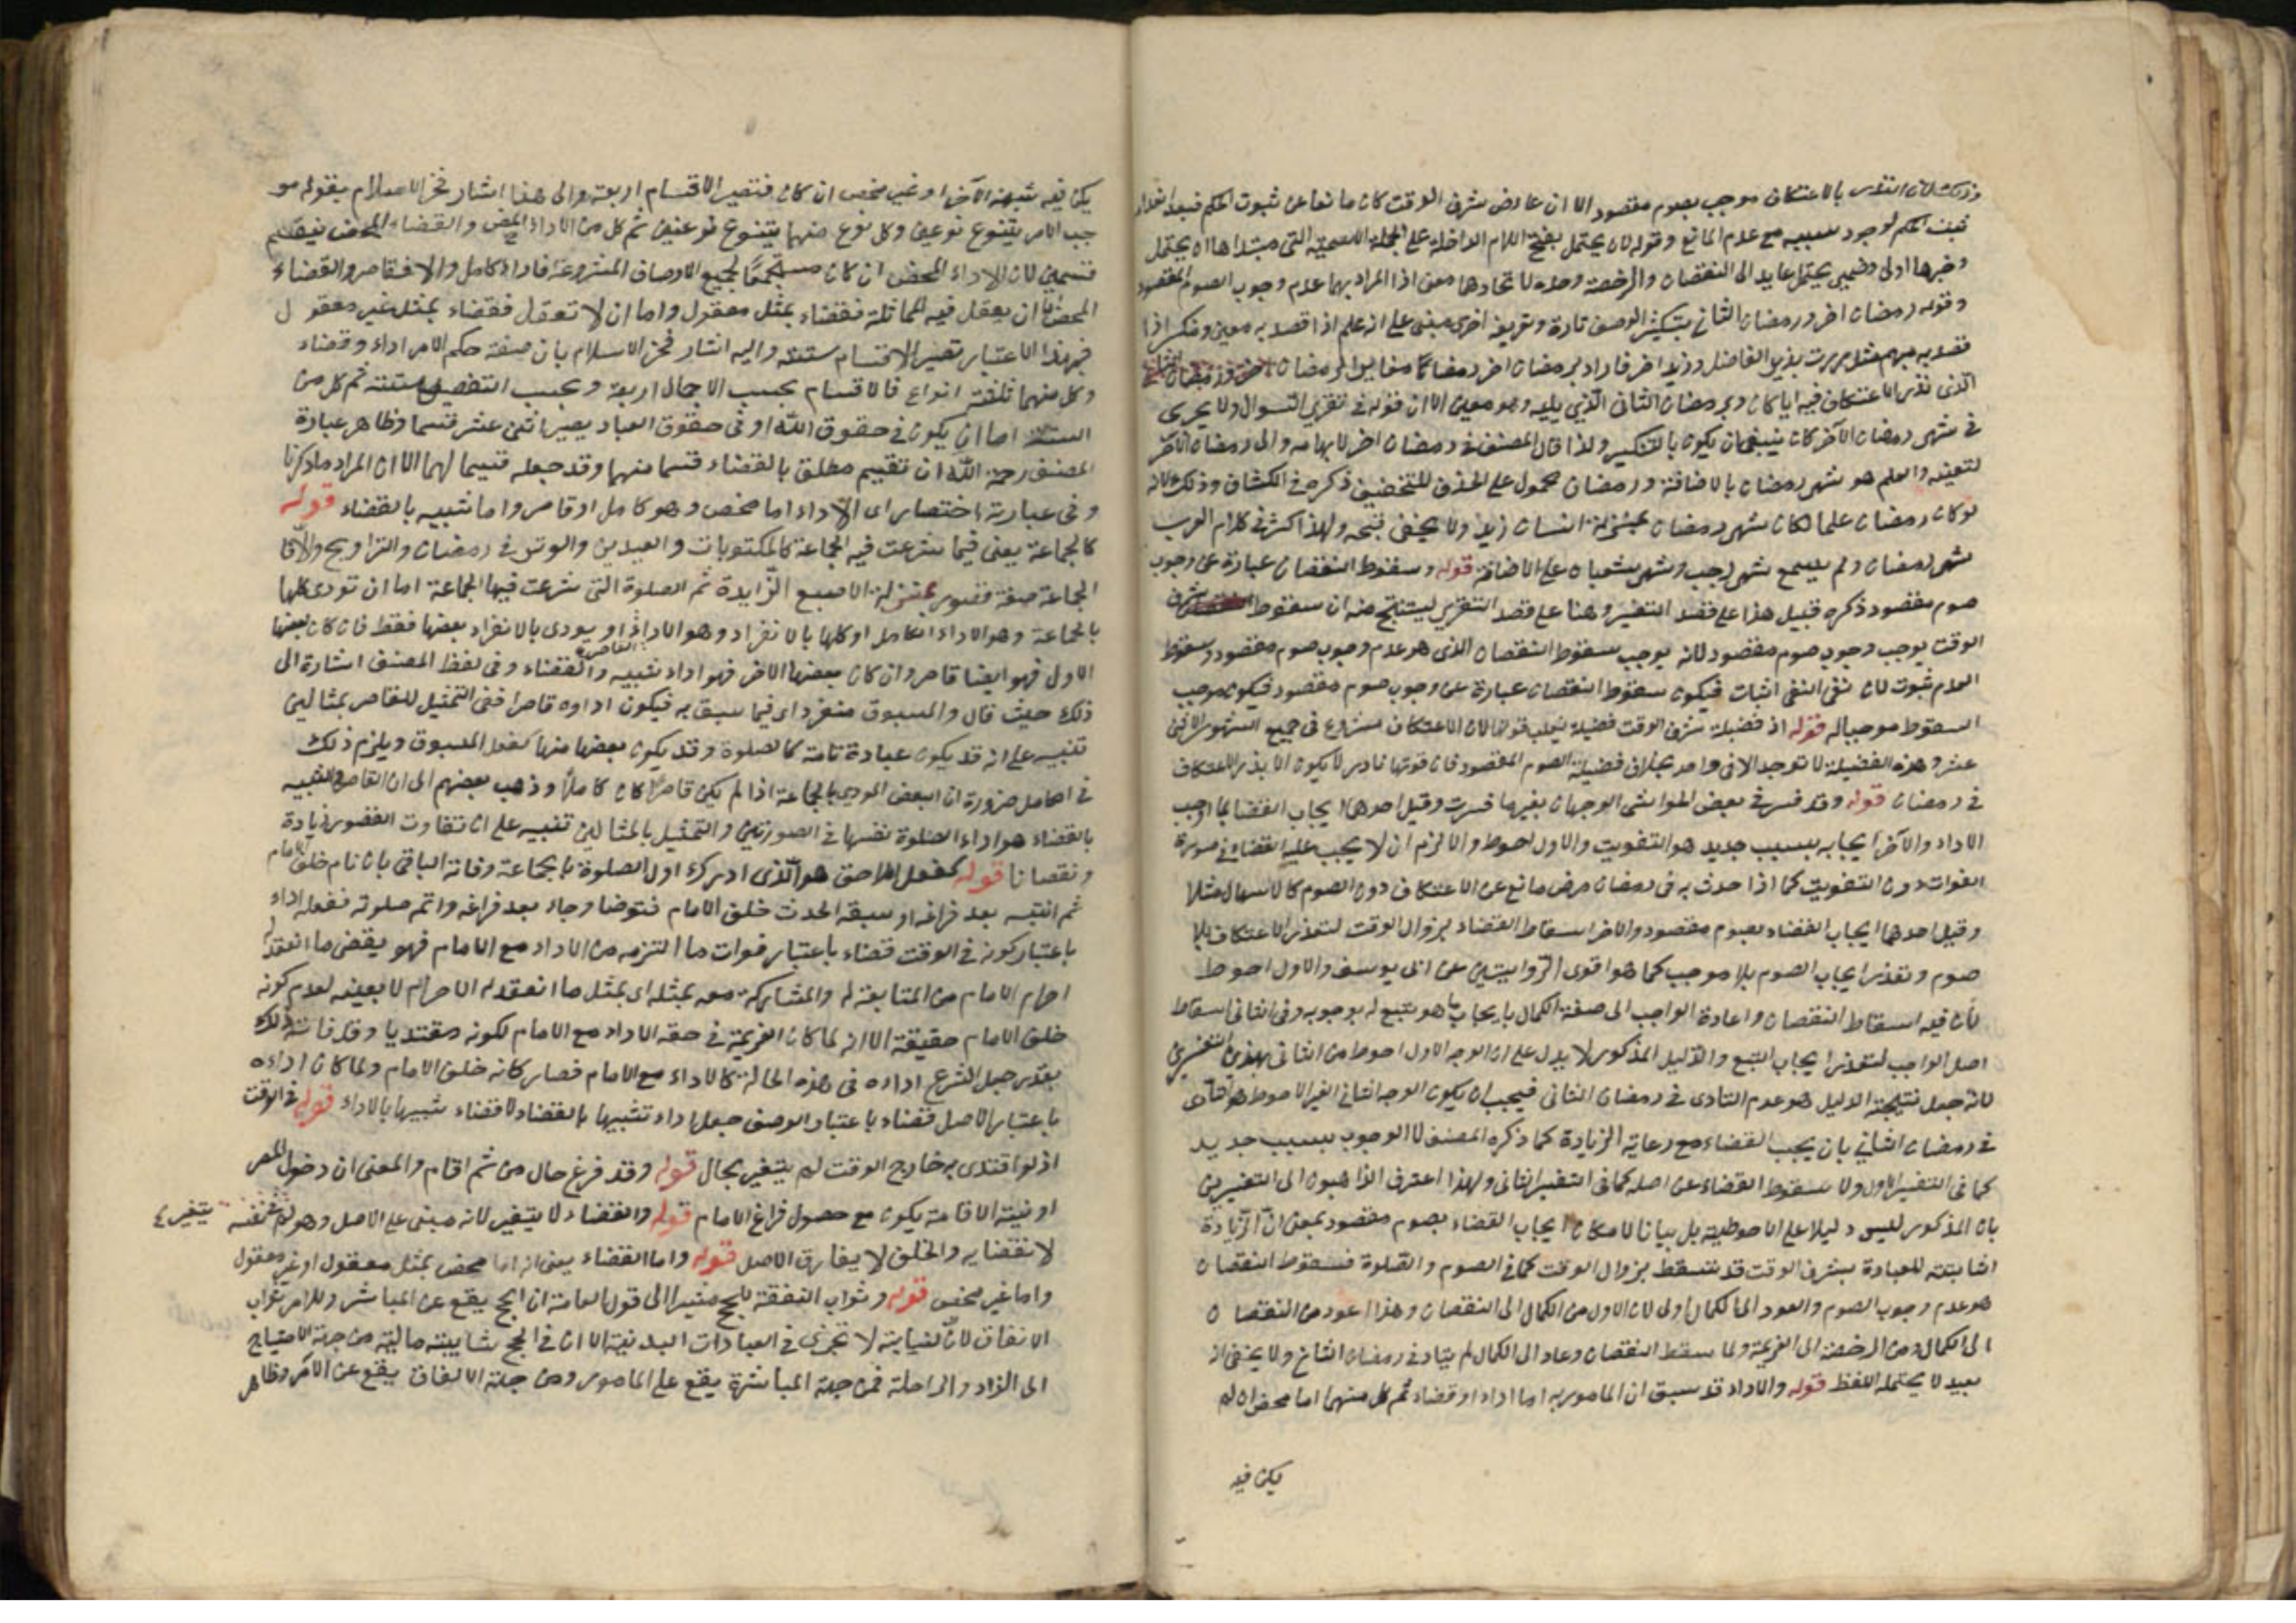 وذلك لان النذر بالاعتكاف موجب بصوم مقصود الا ان عارض شرف الوقت كان مانعا عن ثبوت الحكم فبعد
فثبت الحكم لوجود سببه مع عدم المانع وقوله لان يحتمل بفتح اللام الداخلة على الجملة الاسمية التي مبتداها ان يحتمل
وخبرها اولى وضمير يحتمل عايد الى النقصان والرخصة وحده لاتحادها معنى اذ المراد بهما عدم وجوب الصوم المقصود
وقوله رمضان اخر ورمضان الثاني بتنكير الوصف تارة وتعريفه اخرى مبنى على انه علم اذا قصد به معين ومنكر اذا
قصد به مبهم مثل مررت بزيد الفاضل وزيد اخر فاراد برمضان اخر رمضانا مغايرا لرمضان
الذى نذر الاعتكاف فيه ايا كان وبرمضان الثانى الذي يليه وهو معين الا ان قوله فى تقرير السوال ولا يجرى
فى شهر رمضان الآخر كان ينبغى ان يكون بالتنكير ولذا قال المصنف فى رمضان اخر لابهامه والى رمضان الآخر
لتعينه والعلم هو شهر رمضان بالاضافة ورمضان محمول على الحذف للتخفيف ذكره فى الكشاف وذلك لانه
لو كان رمضان علما لكان شهر رمضان بمنزلة انسان زيد ولا يخفى قبحه ولهذا كثر فى كلام العرب
شهر رمضان ولم يسمع شهر رجب وشهر شعبان على الاضافة قوله وسقوط النقصان عبارة عن وجوب
صوم مقصود ذكره قبيل هذا على قصد التفسير وهنا على قصد التقرير ليستنتج منه ان سقوط شرف
الوقت يوجب وجوب صوم مقصود لانه يوجب سقوط النقصان الذى هو عدم وجوب صوم مقصود وسقوط
العدم ثبوت لان نفى النفى اثبات فيكون سقوط النقصان عبارة عن وجوب صوم مقصود فيكون موجب
السقوط موجبا له قوله اذ فضيلة شرف الوقت فضيلة يغلب فوتها لان الاعتكاف مشروع فى جميع الشهور الاثنى
عشر وهذه الفضيلة لا توجد الا فى واحد بخلاف فضيلة الصوم المقصود فان فوتها نادر لا يكون الا بنذر الاعتكاف
فى رمضان قوله وقد فسر فى بعض الحواشى الوجهان بغير ما فسرت وقيل احدهما ايجاب القضا بما اوجب
الاداء والآخر ايجابه بسبب جديد هو التفويت والاول احوط والا لزم ان لا يجب عليه القضاء فى صورة
الفوات دون التفويت كما اذا حدث به فى رمضان مرض مانع عن الاعتكاف دون الصوم كالاسهال مثلا
وقيل احدهما ايجاب القضاء بصوم مقصود والاخر اسقاط القضاء بزوال الوقت لتعذر الاعتكاف بلا
صوم وتعذر ايجاب الصوم بلا موجب كما هو اقوى الروايتين عن ابى يوسف والاول احوط
لان فيه اسقاط النقصان واعادة الواجب الى صفة الكمال بايجاب ما هو تبع له بوجوبه وفى الثانى اسقاط
اصل الواجب لتعذر ايجاب التبع والدليل المذكور لا يدل على ان الوجه الاول احوط من الثانى بهذين التفسيرين
لانه جعل نتيجة الدليل هو عدم التادى فى رمضان الثانى فيجب ان يكون الوجه الثانى الغير الاحوط هو التأدى
فى رمضان الثاني بان يجب القضاء مع رعاية الزيادة كما ذكره المصنف لا الوجوب بسبب جديد
كما فى التفسير الاول ولا سقوط القضاء عن اصله كما فى التفسير الثانى ولهذا اعترف الذاهبون الى التفسيرين
بان المذكور ليس دليلا على الاحوطية بل بيانا لامكان ايجاب القضاء بصوم مقصود بمعنى ان الزيادة
الثابتة للعبادة بشرف الوقت قد تسقط بزوال الوقت كما فى الصوم والصلوة فسقوط النقصان
هو عدم وجوب الصوم والعود الى الكمال اولى لان الاول من الكمال الى النقصان وهذا عود من النقصان
الى الكمال ومن الرخصة الى العزيمة ولما سقط النقصان وعاد الى الكمال لم يتاد فى رمضان الثانى ولا يخفى انه
بعيد لا يحتمله اللفظ قوله والاداء قد سبق ان المامور به اما اداء او قضاء ثم كل منهما اما محض ان لم
يكن فيه
يكن فيه شبهة الآخر او غير محض ان كان فتصير الاقسام اربعة والى هذا اشار فخر الاسلام بقوله مو
جب الامر يتنوع نوعين وكل نوع منهما يتنوع نوعين ثم كل من الاداء المحض والقضاء المحض ينقسم
قسمين لان الاداء المحض ان كان مستجمعا لجميع الاوصاف المشروعة فاداء كامل والا فقاصر والقضاء
المحض ان يعقل فيه المماثلة فقضاء بمثل معقول واما ان لا تعقل فقضاء بمثل غير معقول
فبهذا الاعتبار تصير الاقسام ستة واليه اشار فخر الاسلام بان صفة حكم الامر اداء وقضاء
وكل منهما ثلثة انواع فالاقسام بحسب الاجمال اربعة وبحسب التفصيل ستة ثم كل من
الستة اما ان يكون فى حقوق الله او فى حقوق العباد يصير اثنى عشر قسما وظاهر عبارة
المصنف رحمة الله ان تقييم مطلق بالقضاء قسما منهما وقد جعله قسيما لهما الا ان المراد ما ذكرنا
وفى عبارته اختصار اى الاداء اما محض وهو كامل او قاصر واما شبيه بالقضاء قوله
كالجماعة يعنى فيما شرعت فيه الجماعة كالمكتوبات والعيدين والوتر فى رمضان والتراويح والا فا
الجماعة صفة قصور بمنزلة الاصبع الزايدة ثم الصلوة التى شرعت فيها الجماعة اما ان تودى كلها
بالجماعة وهو الاداء الكامل او كلها بالانفراد وهو الاداء القاصر او يودى بالانفراد بعضها فقط فان كان بعضها
الاول فهو ايضا قاصر وان كان بعضها الاخر فهو اداء شبيه والقضاء وفى لفظ المصنف اشارة الى
ذلك حيث قال والمسبوق منفرد اى فيما سبق به فيكون اداوه قاصرا ففى التمثيل للقاصر بمثالين
تنبيه على انه قد يكون عبادة تامة كالصلوة وقد يكون بعضها منها كفعل المسبوق ويلزم ذلك
فى الكامل ضرورة ان البعض المودى بالجماعة اذا لم يكن قاصرا كان كاملا وذهب بعضهم الى ان القاصر والشبيه
بالقضاء هو اداء الصلوة نفسها فى الصورتين والتمثيل بالمثالين تنبيه على ان تفاوت القصور زيادة
ونقصانا قوله كفعل اللاحق هو الذى ادرك اول الصلوة بالجماعة وفاته الباقى بان نام خلف الامام
ثم انتبه بعد فراغه او سبقه الحدث خلف الامام فتوضا وجاء بعد فراغه واتم صلوته ففعله اداء
باعتبار كونه فى الوقت قضاء باعتبار فوات ما التزمه من الاداء مع الامام فهو يقضى ما انعقد له
احرام الامام من المتابعة له والمشاركة معه بمثله اى بمثل ما انعقد له الاحرام لا بعينه لعدم كونه
خلف الامام حقيقة الا انه لما كان العزيمة فى حقه الاداء مع الامام لكونه مقتديا وقد فاته ذلك
بعذر جعل الشرع اداءه فى هذه الحالة كالاداء مع الامام فصار كانه خلف الامام ولما كان اداءه
باعتبار الاصل قضاء باعتبار الوصف جعل اداء شبيها بالقضاء لا قضاء شبيها بالاداء قوله فى الوقت
اذ لو اقتدى به خارج الوقت لم يتغير بحال قوله وقد فرغ حال من ثم اقام والمعنى ان دخول المصر
او نية الاقامة يكون مع حصول فراغ الامام قوله والقضاء لا يتغير لانه مبنى على الاصل وهو لم يتغير
لانقضايه والخلف لا يفارق الاصل قوله واما القضاء يعنى انه اما محض بمثل معقول او غير معقول
واما غير محض قوله وثواب النفقة للحج مشيرا الى قول العامة ان الحج يقع عن المباشر وللامر ثواب
الانفاق لان النيابة لا تجزى فى العبادات البدنية الا ان فى الحج شايبة مالية من جهة الاحتياج
الى الزاد والراحلة فمن جهة المباشرة يقع على المامور ومن جهة الانفاق يقع عن الآمر وظاهر